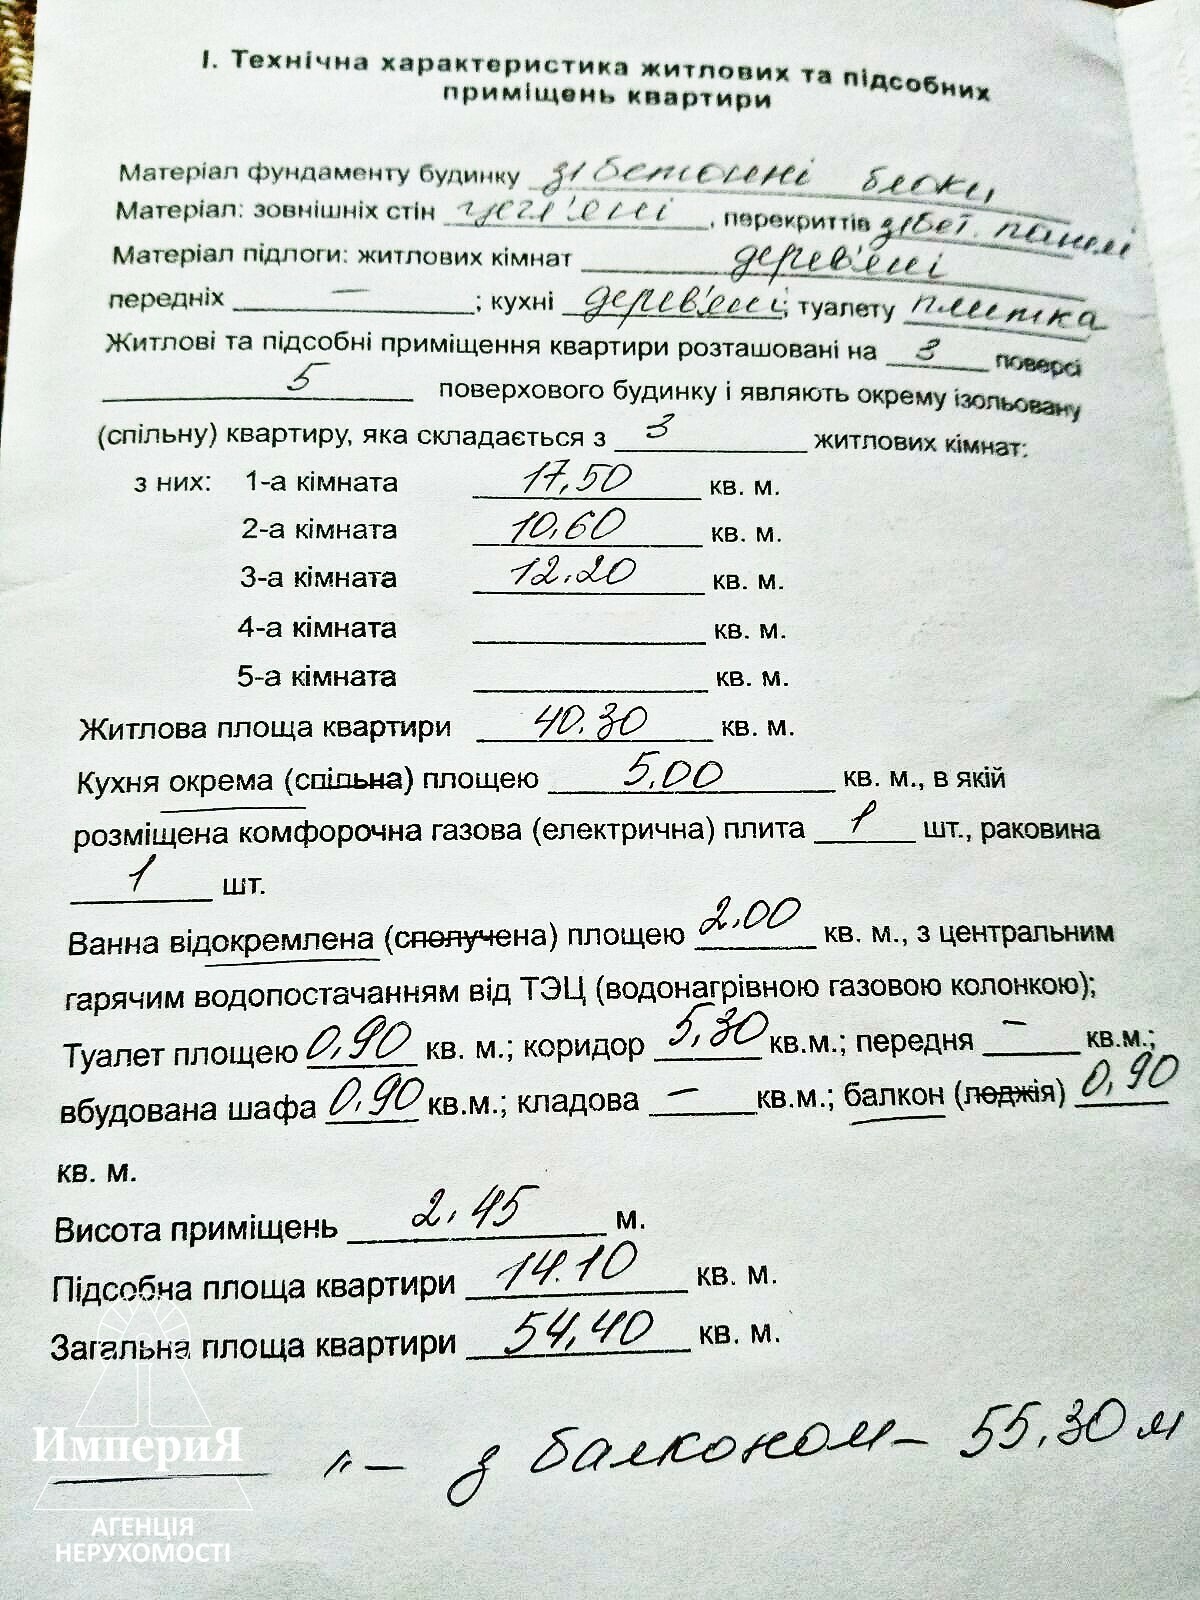 І. Технічна характеристика житлових та підсобних
приміщень квартири
Матеріал фундаменту будинку з/бетонні блоки
Матеріал: зовнішніх стін цегл'яні, перекриттів з/бет. панелі
Матеріал підлоги: житлових кімнат дерев'яні
передніх —; кухні дерев'яні; туалету плитка
Житлові та підсобні приміщення квартири розташовані на 3 поверсі
5 поверхового будинку і являють окрему ізольовану
(спільну) квартиру, яка складається з 3 житлових кімнат:
з них: 1-а кімната 17,50 кв. м.
2-а кімната 10,60 кв. м.
3-а кімната 12.20 кв. м.
4-а кімната кв. м.
5-а кімната кв. м.
Житлова площа квартири 40.30 кв. м.
Кухня окрема (спільна) площею 5,00 кв. м., в якій
розміщена комфорочна газова (електрична) плита 1 шт., раковина
1 шт.
Ванна відокремлена (сполучена) площею 2,00 кв. м., з центральним
гарячим водопостачанням від ТЭЦ (водонагрівною газовою колонкою);
Туалет площею 0,90 кв. м.; коридор 5,30 кв.м.; передня — кв.м.;
вбудована шафа 0,90 кв.м.; кладова — кв.м.; балкон (лоджія) 0,90
кв. м.
Висота приміщень 2,45 м.
Підсобна площа квартири 14.10 кв. м.
Загальна площа квартири 54,40 кв. м.
—"— з балконом — 55,30 м
ИмпериЯ
АГЕНЦІЯ
НЕРУХОМОСТІ